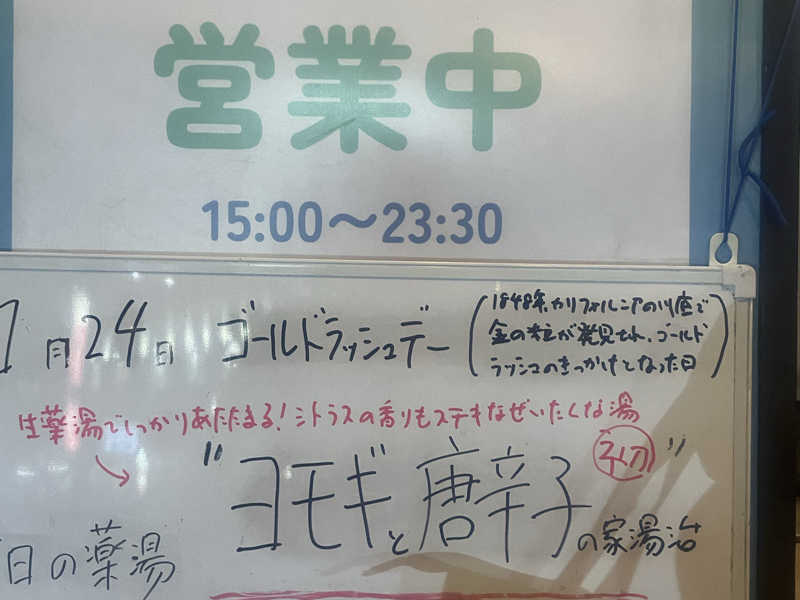 営業中
15:00～23:30
1月24日 ゴールドラッシュデー
(1848年、カリフォルニアの川底で
金の粒が発見され、ゴールド
ラッシュのきっかけとなった日)
生薬湯でしっかりあたたまる!シトラスの香りもステキなぜいたくな湯
"ヨモギと唐辛子の家湯治"
日の薬湯